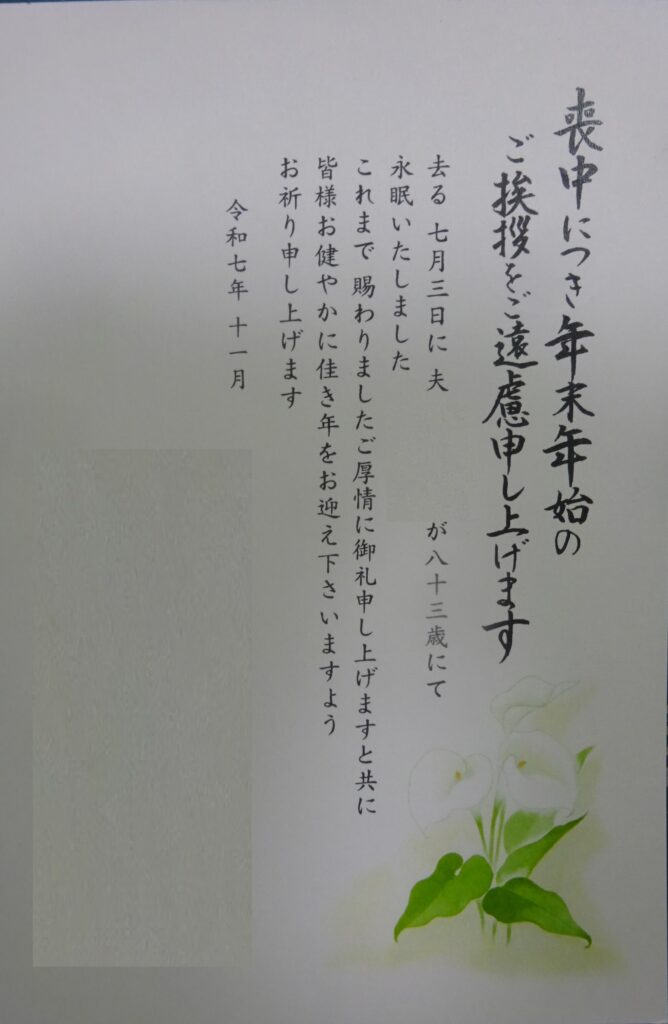 喪中につき年末年始の
ご挨拶をご遠慮申し上げます
去る 七月三日に 夫 が八十三歳にて
永眠いたしました
これまで 賜わりましたご厚情に御礼申し上げますと共に
皆様お健やかに佳き年をお迎え下さいますよう
お祈り申し上げます
令和七年 十一月